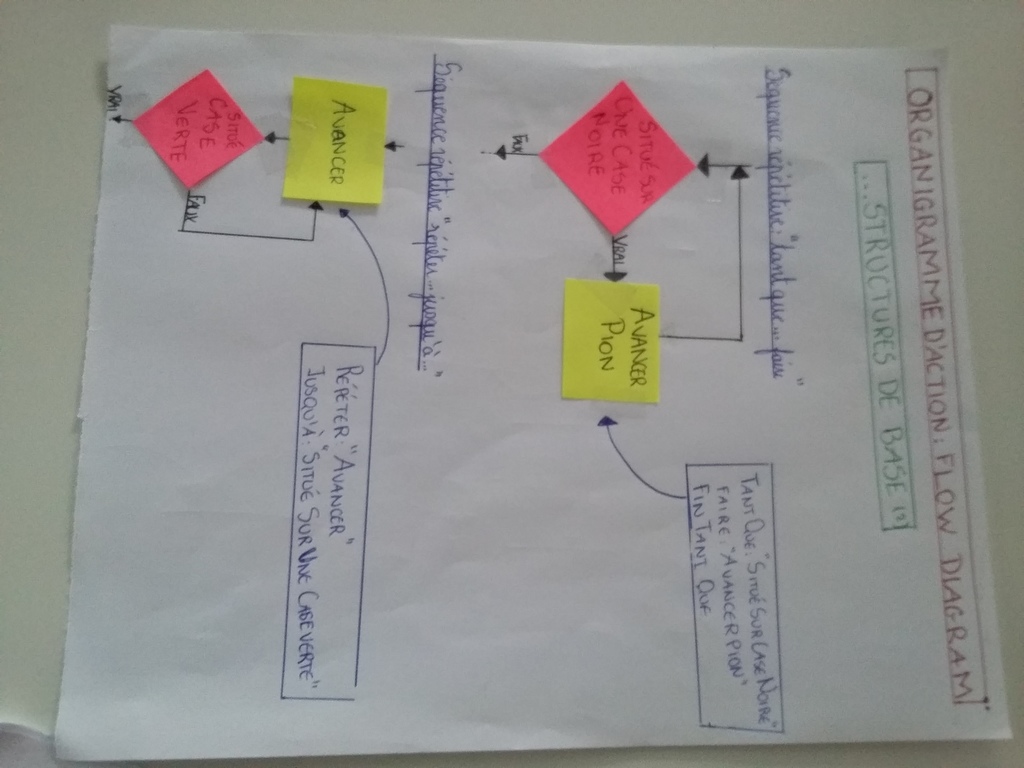 ORGANIGRAMME D'ACTION: FLOW DIAGRAM
...STRUCTURES DE BASE
Séquence répétitive: "tant que... faire"
SITUÉ SUR
UNE CASE
NOIRE
VRAI
AVANCER
PION
FAUX
TANT QUE: "SITUÉ SUR CASE NOIRE"
FAIRE: "AVANCER PION"
FIN TANT QUE
Séquence répétitive "répéter... jusqu'à..."
AVANCER
SITUÉ
CASE
VERTE
FAUX
VRAI
RÉPÉTER: "AVANCER"
JUSQU'À: "SITUÉ SUR UNE CASE VERTE"